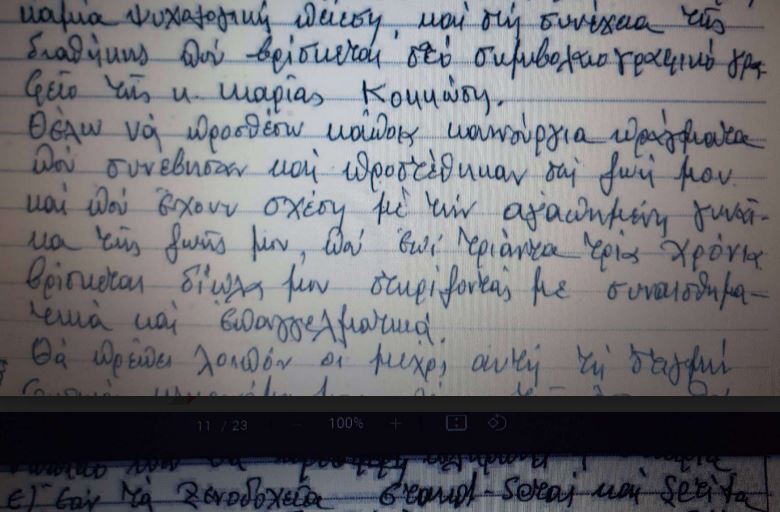 καμμία ψυχολογική πίεση, και στη συνέχεια τῆς
διαθήκης πού βρίσκεται στό συμβολαιογραφικό γρα-
φεῖο τῆς κ. Μαρίας
Θέλω νά προσθέσω κάποια καινούργια πράγματα
πού συνέβησαν και προστέθηκαν στή ζωή μου
και πού ἔχουν σχέση μέ τήν ἀγαπημένη γυναῖ-
κα τῆς ζωῆς μου, πού ἐπί τριάντα τρία χρόνια
βρίσκεται δίπλα μου στηρίζοντάς με συναισθημα-
τικά και ἐπαγγελματικά.
Θά πρέπει λοιπόν οι μέχρι αυτή τή στιγμή
11 / 23
100%
ε) ἐάν τά ξενοδοχεῖα και